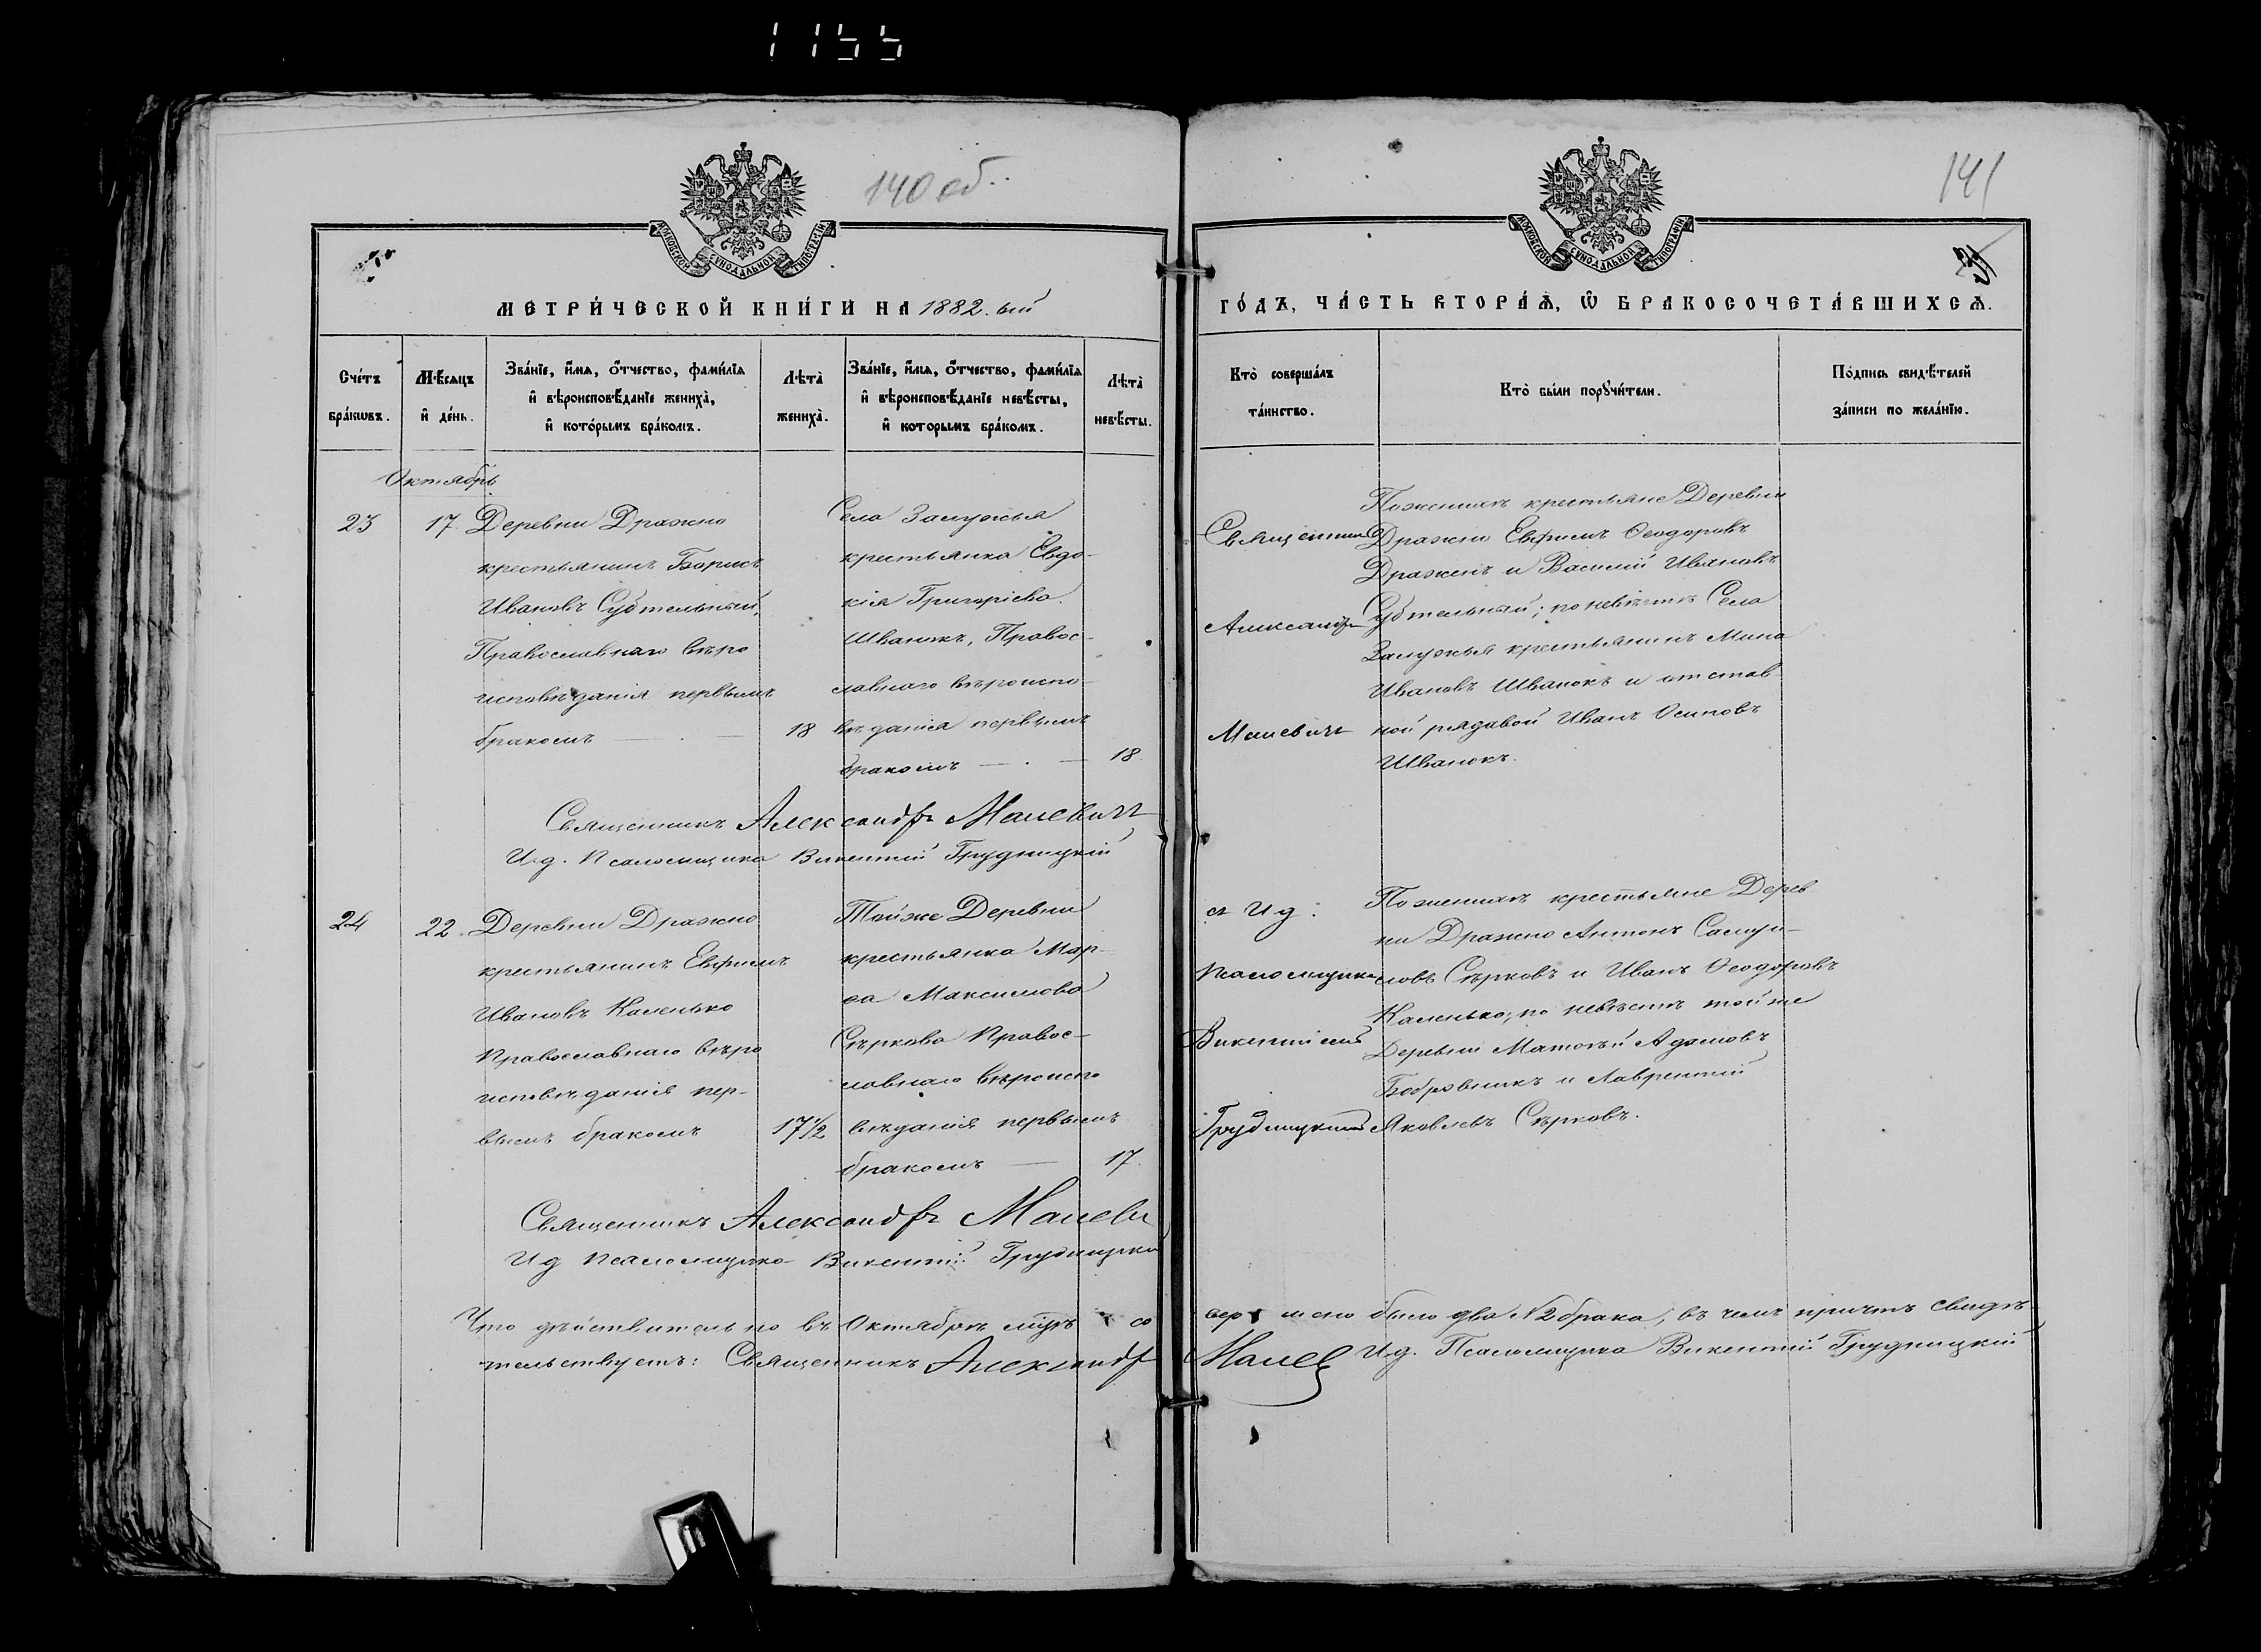 1155
140 об.
141
31
МОСКОВСКОЙ СѴНОДАЛЬНОЙ ТИПОГРАФІИ
МОСКОВСКОЙ СѴНОДАЛЬНОЙ ТИПОГРАФІИ
МЕТРИ́ЧЕСКОЙ КНИ́ГИ НА 1882.ый
ГО́ДЪ, ЧА́СТЬ ВТОРА́Ѧ, Ѡ҆ БРАКОСОЧЕТА́ВШИХСѦ.
Сче́тъ бра́кωвъ.
Мѣ́сѧцъ и҆ де́нь.
Зва́нїе, и҆́мѧ, ѻ҆́тчество, фами́лїѧ
и҆ вѣроисповѣ́данїе жениха̀,
и҆ кото́рымъ бра́комъ.
Лѣта̀ жениха̀.
Зва́нїе, и҆́мѧ, ѻ҆́тчество, фами́лїѧ
и҆ вѣроисповѣ́данїе невѣ́сты,
и҆ которымъ бра́комъ.
Лѣта̀ невѣ́сты.
Кто̀ соверша́лъ та́инство.
Кто̀ бы́ли порꙋчи́тели.
По́дпись свидѣ́телей
за́писи по жела́нїю.
Октябрь
23
17.
Деревни Дражно
крестьянинъ Борисъ
Ивановъ Субтельный,
Православнаго вѣро
исповѣданія первымъ
бракомъ
18
Села Залужья
крестьянка Евдо-
кія Григоріева
Иванокъ, Правос-
лавнаго вѣроиспо-
вѣданія первымъ
бракомъ
18.
Священникъ
Александръ
Малевичъ
По женихѣ крестьяне Деревни
Дражни Евфимъ Ѳеодоровъ
Дражень и Василій Ивановъ
Субтельный; по невѣстѣ Села
Залужья крестьянинъ Мина
Ивановъ Иванокъ и отстав
ной рядавой Иванъ Осиповъ
Иванокъ.
Священникъ Александръ Малевичъ
И.д. Псаломщика Викентій Грудницкій
24
22.
Деревни Дражно
крестьянинъ Евфимъ
Ивановъ Каленько
Православнаго вѣро
исповѣданія пер-
вымъ бракомъ
17½
Тойже Деревни
крестьянка Мар-
ѳа Максимова
Сѣркова Правос-
лавнаго вѣроиспо
вѣданія первымъ
бракомъ
17.
съ И д.
псаломщика
Викентіемъ
Грудницкимъ
По женихѣ крестьяне Дерев
ни Дражно Антонъ Самуи-
ловъ Сѣрковъ и Иванъ Ѳеодоровъ
Каленько; по невѣстѣ тойже
Деревни Матѳѣй Адамовъ
Бобровникъ и Лаврентій
Яковлевъ Сѣрковъ.
Священникъ Александръ Малеви
И д псаломщика Викентій Грудницкій
Что дѣйствительно въ Октябрѣ мцѣ со
вершено было два №2 брака, въ чемъ причтъ свидѣ-
тельствуетъ: Священникъ Александръ
Малев И.д. Псаломщика Викентій Грудницкій